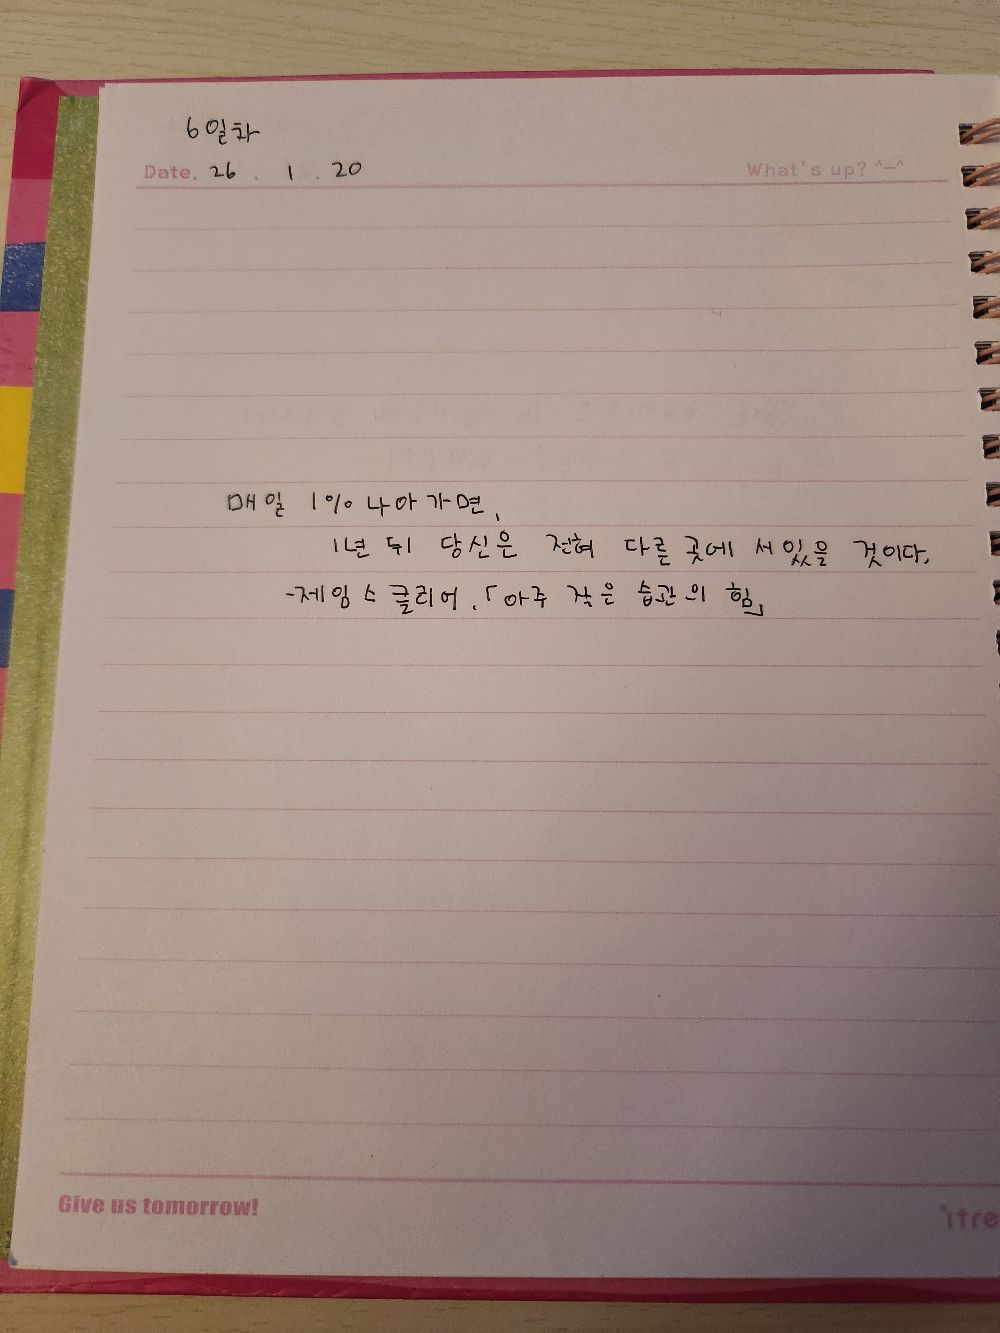 6일차
Date. 26 . 1 . 20 What's up? ^_^
매일 1% 나아가면,
1년 뒤 당신은 전혀 다른 곳에 서있을 것이다.
-제임스 클리어.「아주 작은 습관의 힘」
Give us tomorrow!
itre